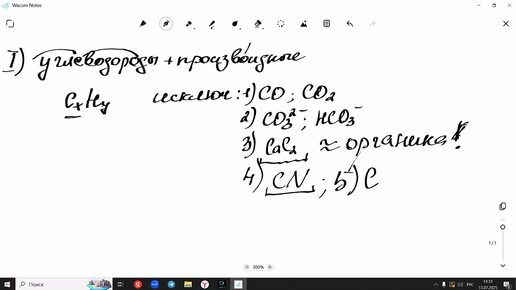 Wacom Notes
I) углеводороды + производные
CxHy исключ: 1) CO ; CO2
2) CO3²⁻ ; HCO3⁻
3) CaC2 ≈ органика!
4) CN ; 5) C
1/1
200%
Поиск
14:33
РУС
13.07.2025